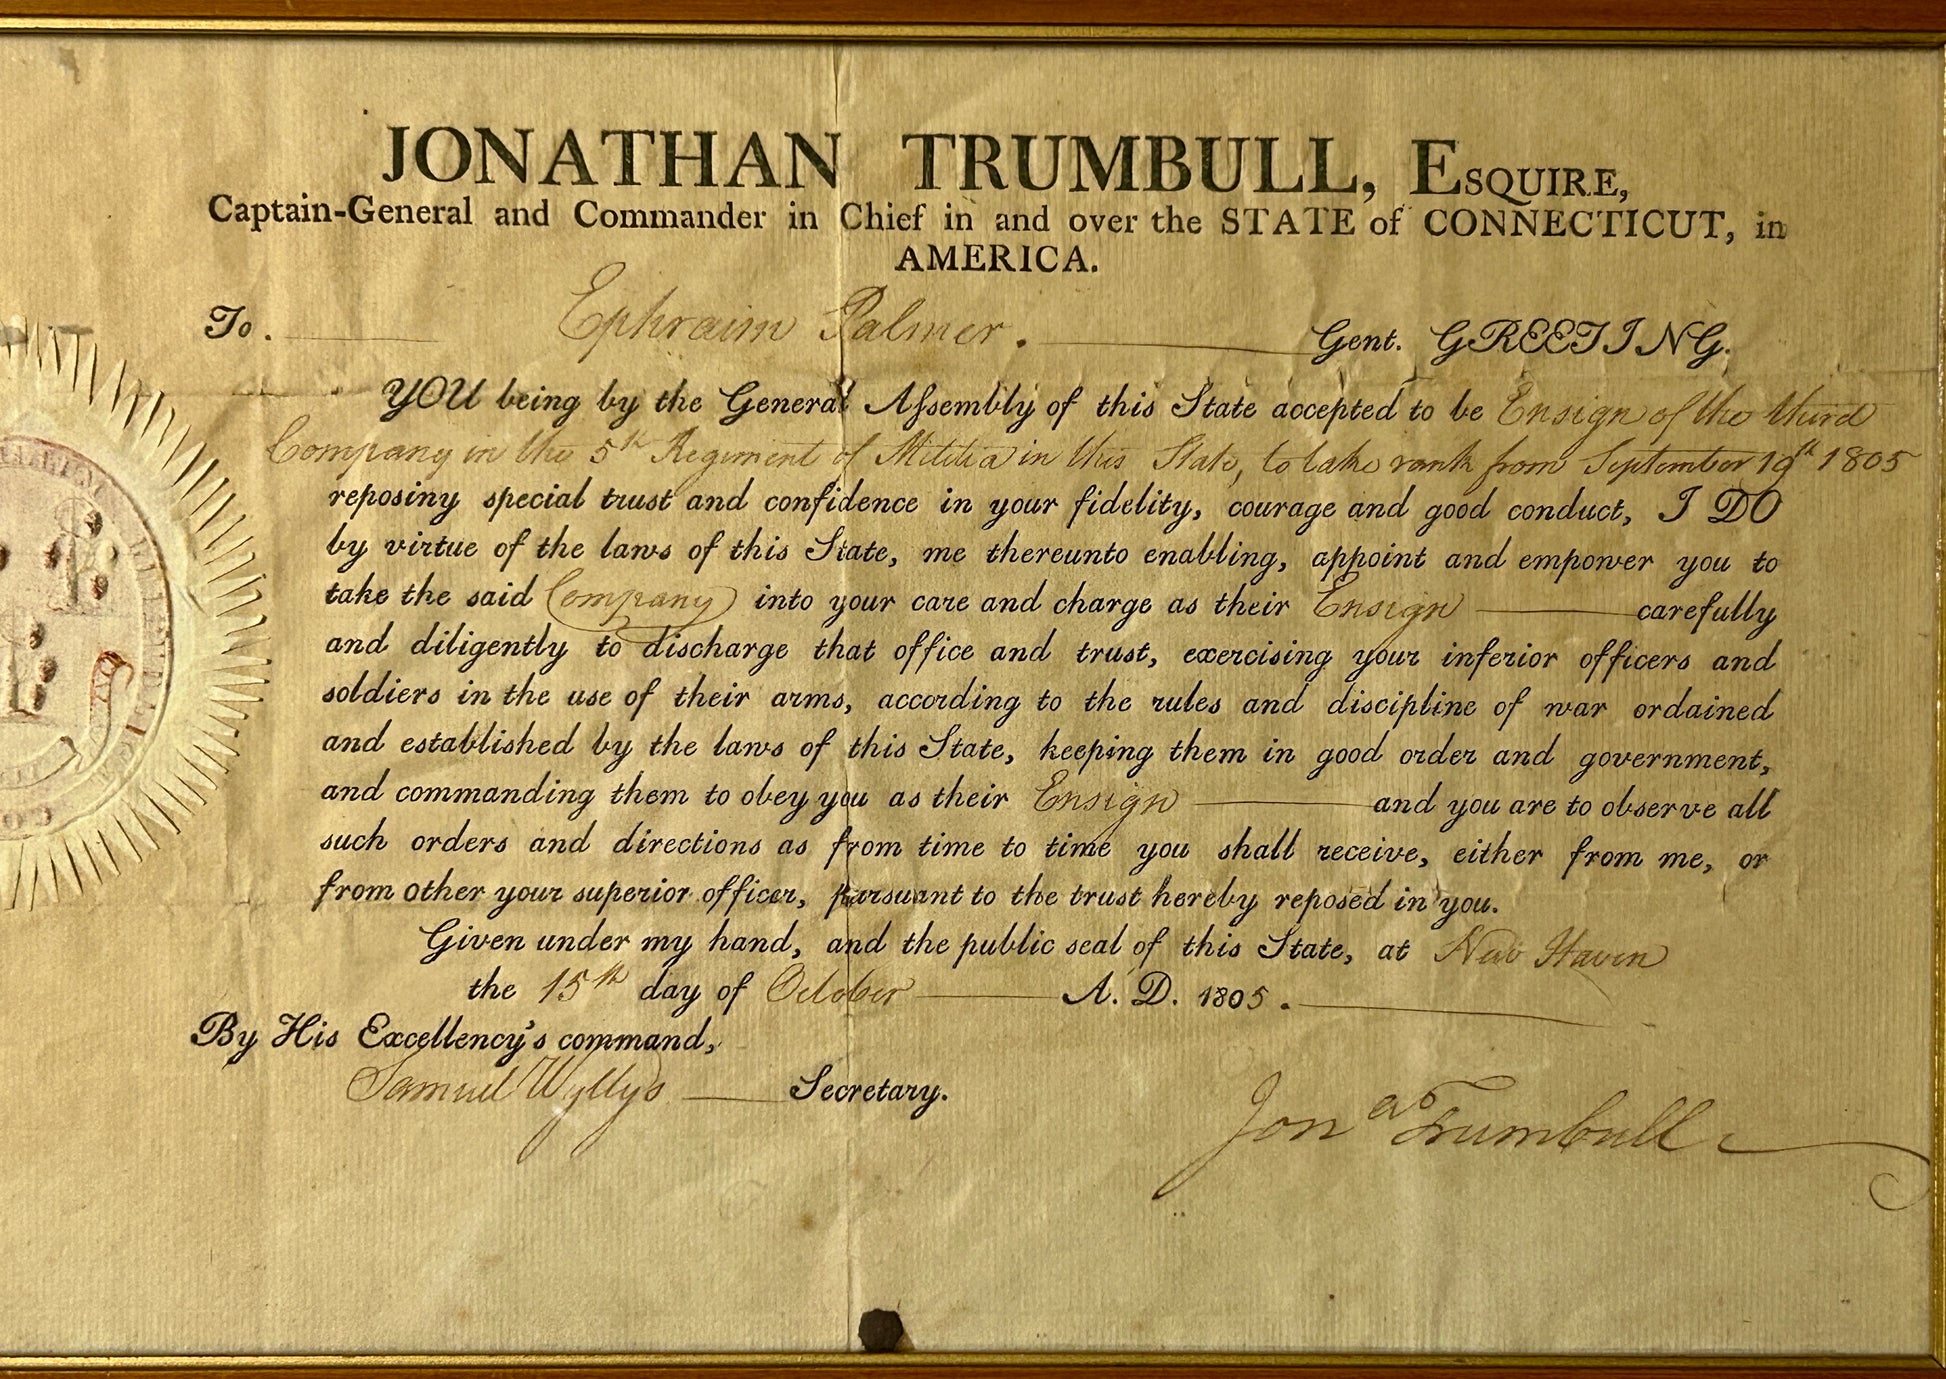 JONATHAN TRUMBULL, ESQUIRE,
Captain-General and Commander in Chief in and over the STATE of CONNECTICUT, in
AMERICA.
To. Ephraim Palmer. Gent. GREETING.
YOU being by the General Assembly of this State accepted to be Ensign of the third
Company in the 5th Regiment of Militia in this State, to take rank from September 19th 1805
reposiny special trust and confidence in your fidelity, courage and good conduct, I DO
by virtue of the laws of this State, me thereunto enabling, appoint and empower you to
take the said Company into your care and charge as their Ensign carefully
and diligently to discharge that office and trust, exercising your inferior officers and
soldiers in the use of their arms, according to the rules and discipline of war ordained
and established by the laws of this State, keeping them in good order and government,
and commanding them to obey you as their Ensign and you are to observe all
such orders and directions as from time to time you shall receive, either from me, or
from other your superior officer, pursuant to the trust hereby reposed in you.
Given under my hand, and the public seal of this State, at New Haven
the 15th day of October A. D. 1805.
By His Excellency's command,
Samuel Wyllys Secretary.
Jona Trumbull